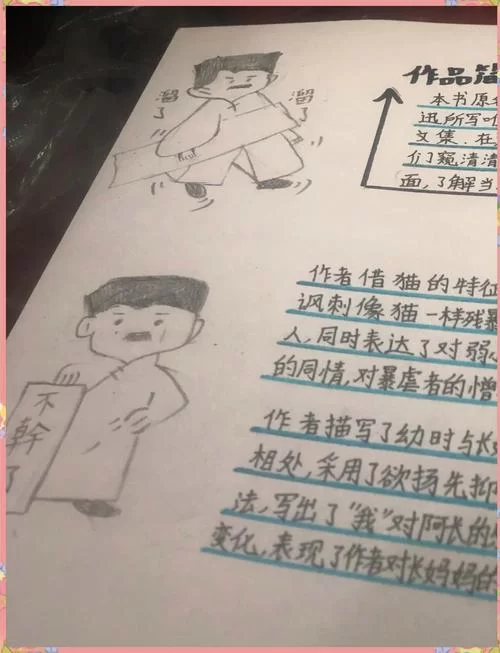 溜了
溜了
作品简
本书原名
迅所写
文集.在
们窥清清
面,了解当
不幹了
作者借猫的特征
讽刺像猫一样残暴
人,同时表达了对弱
的同情,对暴虐者的憎
作者描写了幼时与长
相处,采用了欲扬先抑
法,写出了“我”对阿长的
变化,表现了作者对长妈妈的